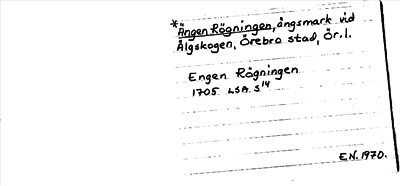 *Ängen Rögningen, ängsmark vid
Älgskogen, Örebro stad, Ör. l.
Engen Rögningen
1705 LSA S¹⁴
E.N. 1970.